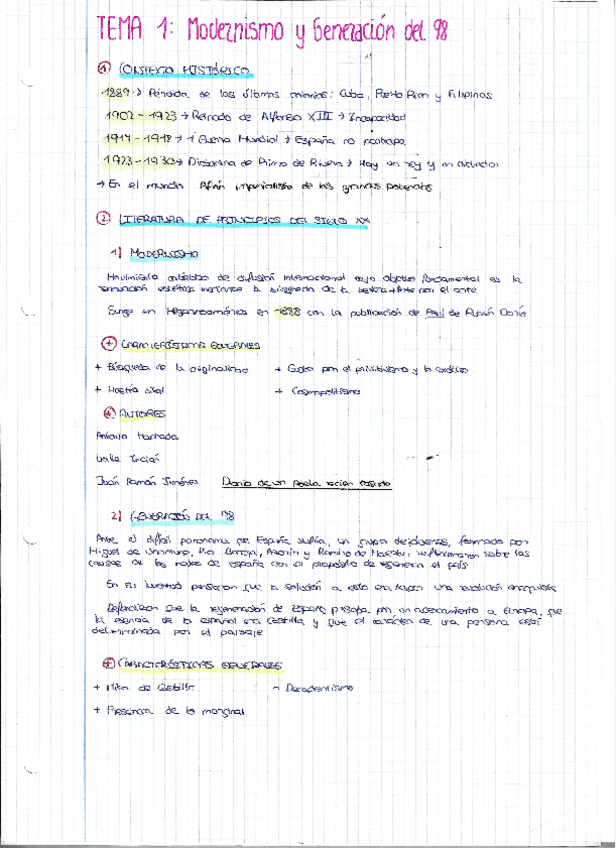 TEMA 1: Modernismo y Generación del 98
① CONTEXTO HISTÓRICO
1889 → Pérdida de las últimas colonias: Cuba, Puerto Rico y Filipinas
1902 - 1923 → Reinado de Alfonso XIII → Incapacidad
1914 - 1918 → 1ª Guerra Mundial → España no participa
1923 - 1930 → Dictadura de Primo de Rivera → Hay un rey y un dictador
→ En el mundo Afán imperialista de las grandes potencias
② LITERATURA DE PRINCIPIOS DEL SIGLO XX
1) MODERNISMO
Movimiento artístico de difusión internacional cuyo objetivo fundamental es la
renovación estética mediante la búsqueda de la belleza → Arte por el arte
Surge en Hispanoamérica en 1888 con la publicación de Azul de Rubén Darío
+ CARACTERÍSTICAS GENERALES
+ Búsqueda de la originalidad + Gusto por el primitivismo y lo exótico
+ Hastío vital + Cosmopolitismo
+ AUTORES
Antonio Machado
Valle Inclán
Juan Ramón Jiménez Diario de un poeta recién casado
2) GENERACIÓN DEL 98
Ante el difícil panorama que España sufría, un grupo de jóvenes, formado por
Miguel de Unamuno, Pío Baroja, Azorín y Ramiro de Maeztu, reflexionaron sobre las
causas de los males de españa con el propósito de regenerar el país
En su juventud pensaron que la solución a esto era hacer una revolución
Defendieron que la regeneración de España pasaba por un acercamiento a Europa, que
la esencia de lo español era Castilla y que el carácter de una persona está
determinada por el paisaje
+ CARACTERÍSTICAS GENERALES
+ Mitin de Castilla - Decadentismo
+ Presencia de lo marginal